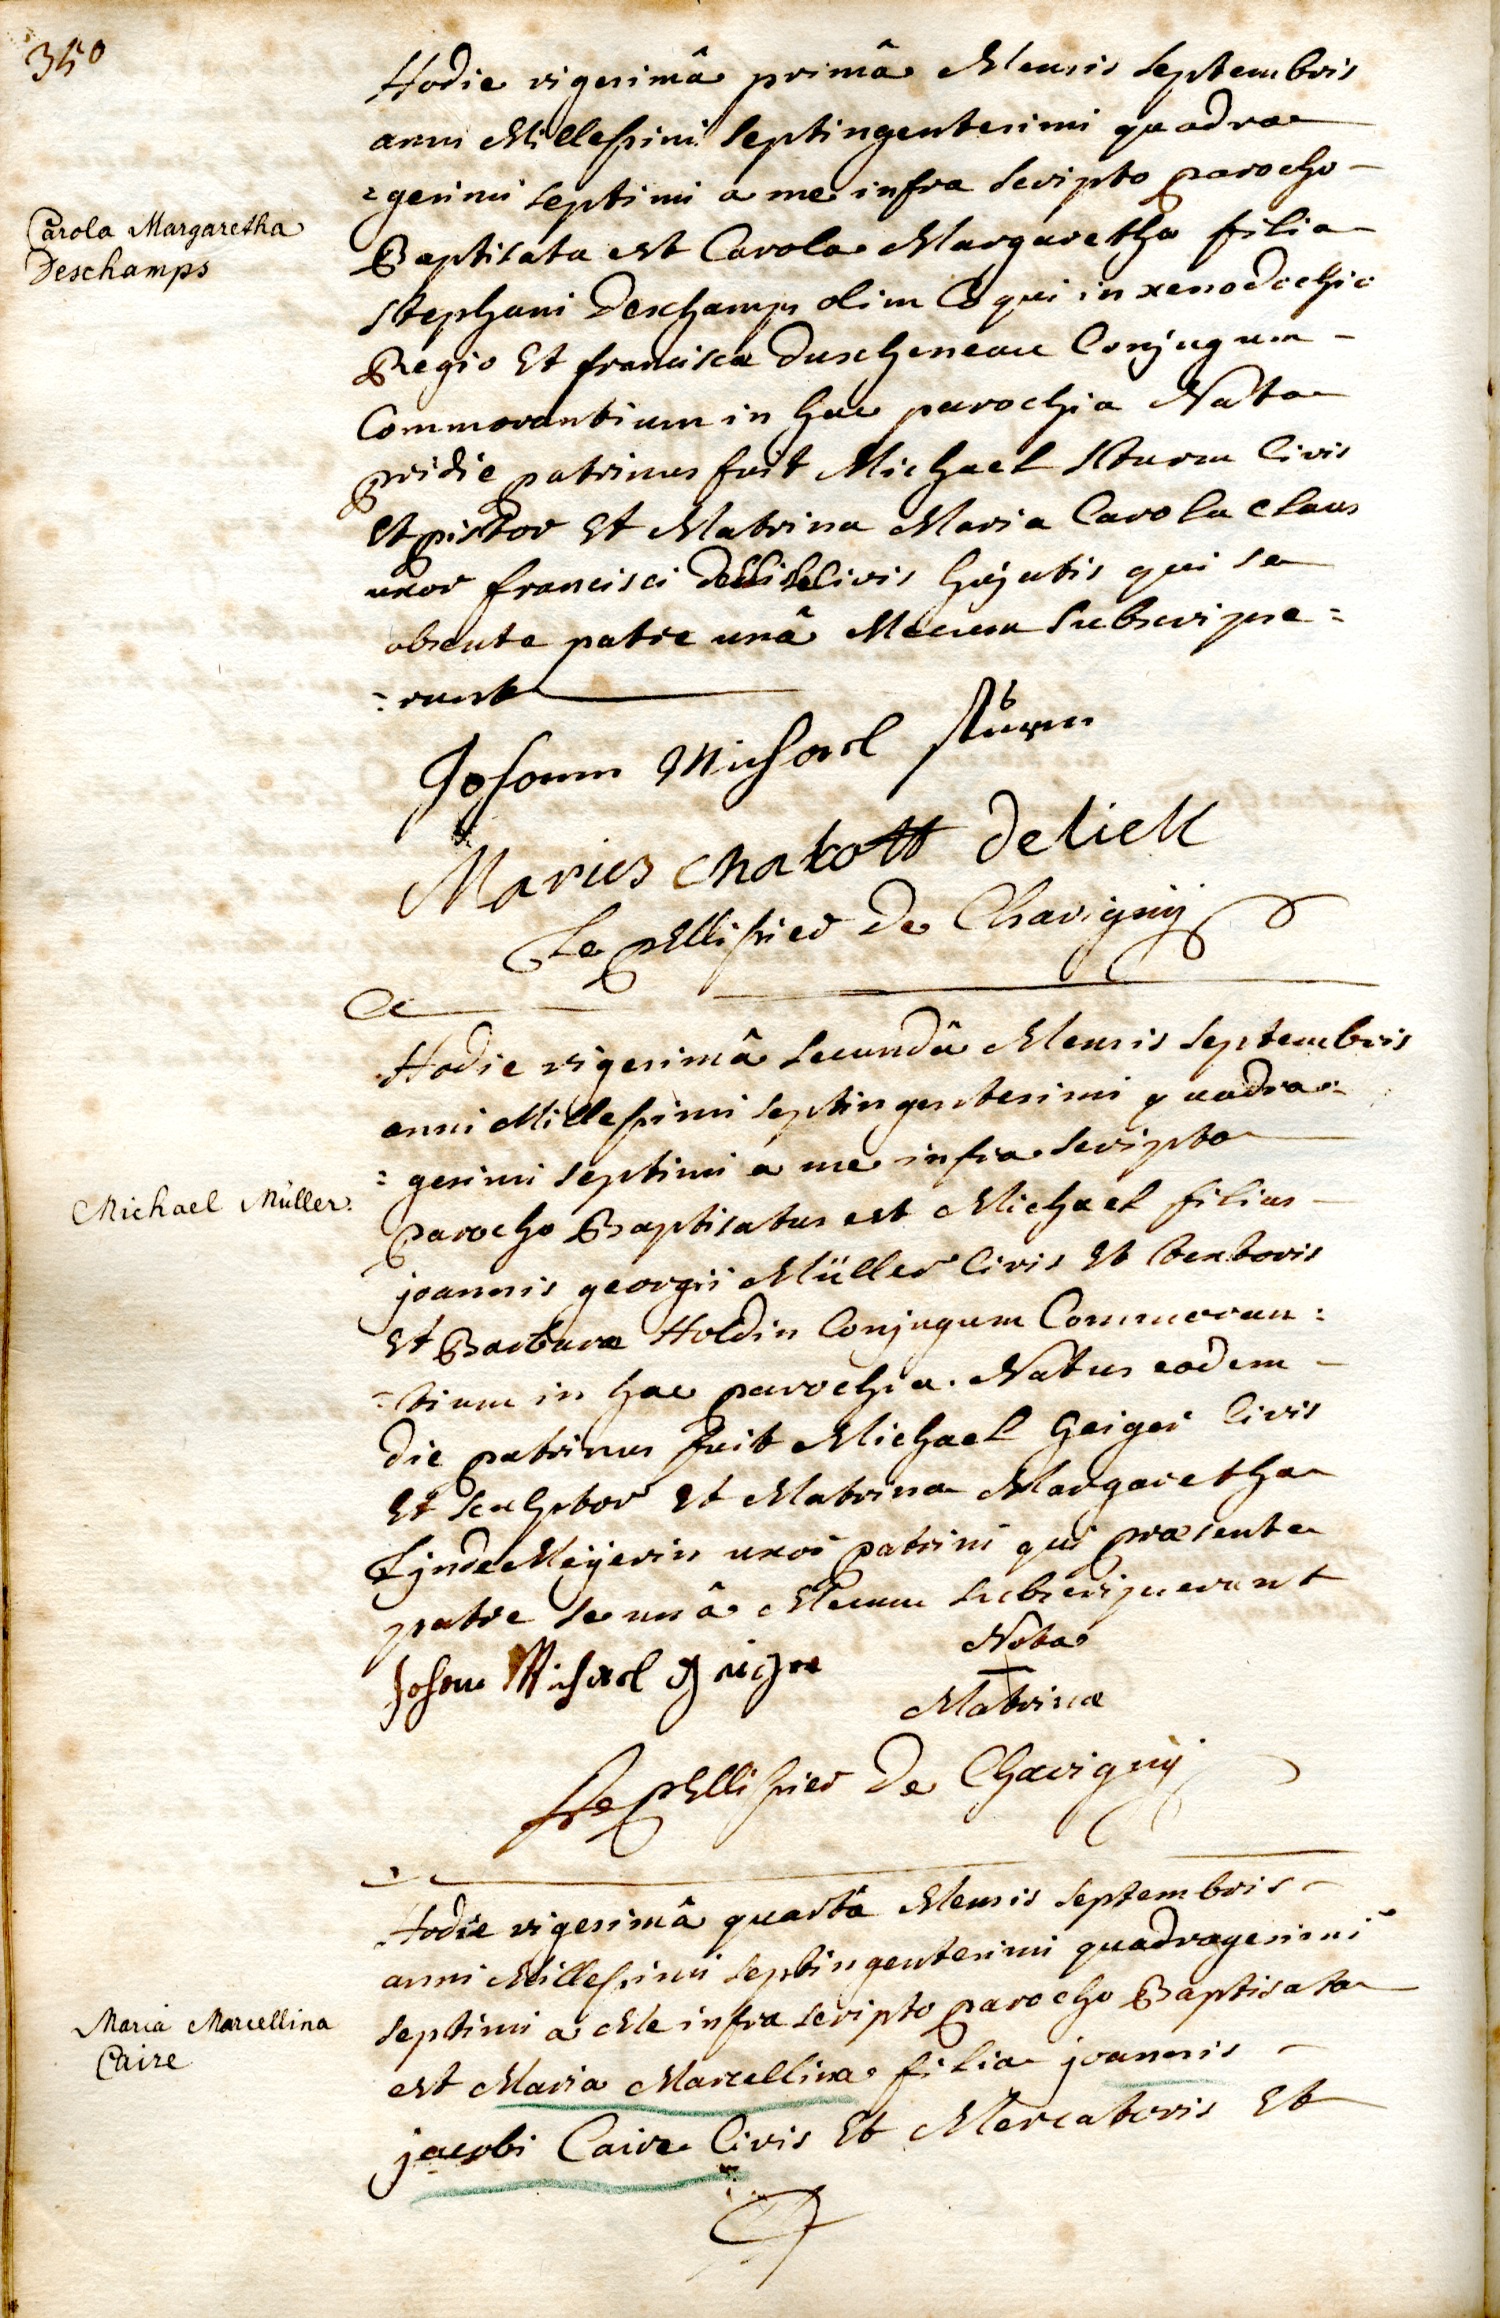 350
Hodie vigesimâ primâ Mensis Septembris
anni Millesimi Septingentesimi quadra
=gesimi septimi a me infra scripto parocho
Carola Margaretha
Deschamps
Baptisata est Carola Margaretha filia
Stephani Deschamps olim Coqui in xenodochio
Regio Et francisca duscheneau Conjugum
Commorantium in hac parochia Nata
pridie patrinus fuit Michael Sturm Civis
Et pistor Et Matrina Maria Carola Claus
uxor francisci Civis hujatis qui se
absente patre unâ Mecum Subscripse=
=runt
Johann Michael Sturm
Maria delick
Le pellissier de Chavigny
Hodie vigesimâ secundâ Mensis Septembris
anni Millesimi septingentesimi quadra=
=gesimi septimi a me infra scripto
Michael Müller.
parocho Baptisatus est Michael filius
joannis georgii Müller Civis Et textoris
Et Barbara Holdin Conjugum Commoran=
=tium in hac parochia. Natus eodem
die patrinus fuit Michael Geiger Civis
Et sculptor Et Matrina Margaretha
LyndeMeÿerin uxor patrini qui præsente
patre se unâ Mecum subscripserunt
Johan Michael Geiger
Nota
Matrinæ
Le pellissier de Chavigny
Hodie vigesimâ quartâ Mensis Septembris
anni Millesimi septingentesimi quadragesimi
Maria Marcellina
Caire
septimi a Me infra scripto parocho Baptisata
est Maria Marcellina filia joannis
jacobi Caire Civis Et Mercatoris Et